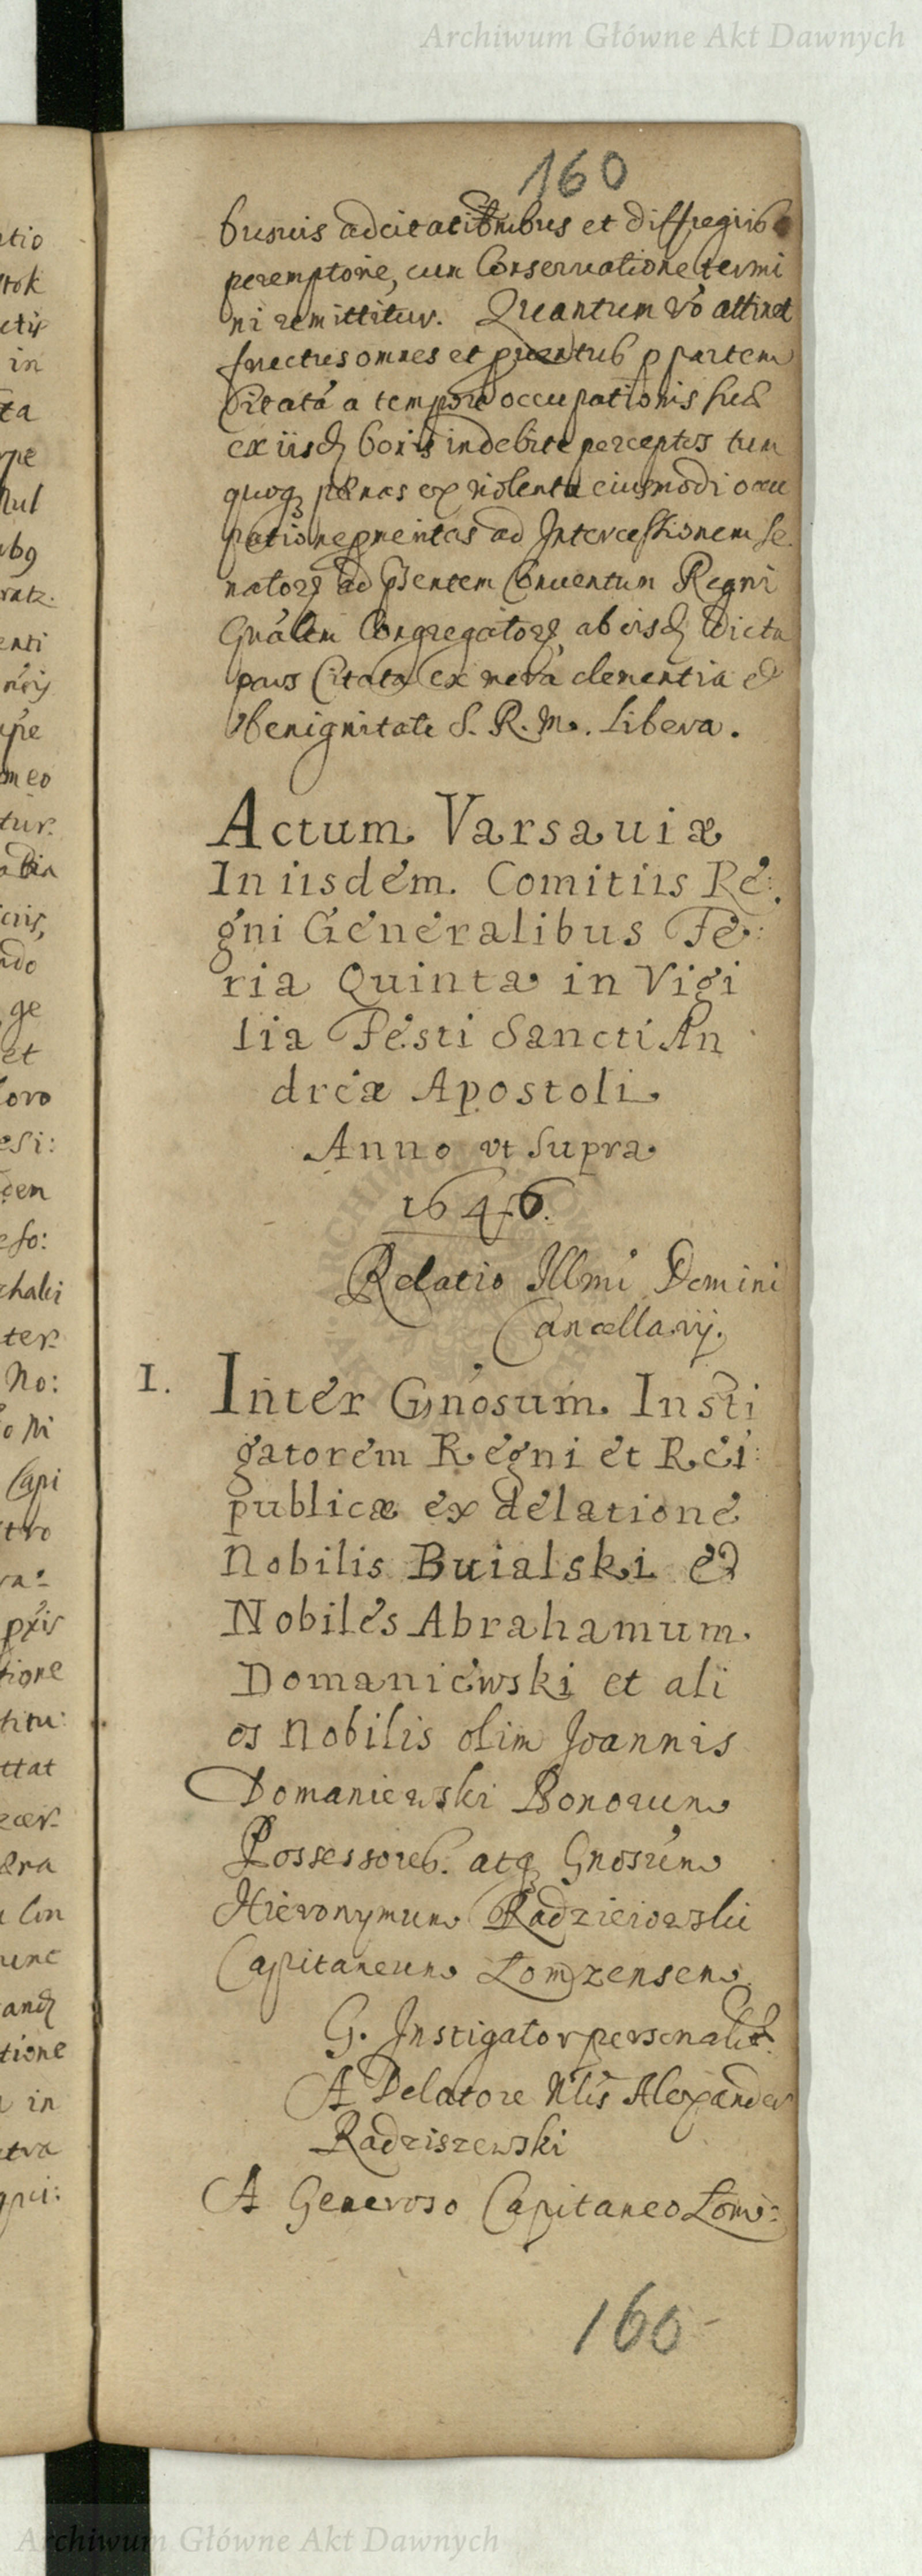 Archiwum Główne Akt Dawnych
160
busuis adcitationibus et diffugiis
peremptorie, cum Conservatione termi
ni remittitur. Quantum vo attinet
fructus omnes et prventus p partem
Citatá a tempore occupationis suæ
ex iisd bonis indebite perceptos tum
quoq pænas ex violenta eiusmodi occu
patione pnentas ad Intercessionem Se
nator ad psentem Conuentum Regni
Gnálem Congregator ab iisd dicta
pars Citata ex mera clementia et
benignitate S. R. M. Libera.
Actum Varsauiæ
In iisdem. Comitiis Re:
gni Generalibus Fe:
ria Quinta in Vigi
lia Festi Sancti An
dreæ Apostoli
Anno vt Supra
1646.
Relatio Illmi Domini
Cancellarij.
I. Inter Gnosum. Insti
gatorem Regni et Rei:
publicæ ex delatione
Nobilis Buialski et
Nobiles Abrahamum
Domaniewski et ali
os Nobilis olim Joannis
Domaniewski Bonorum
Possessores. atq Gnosum
Hieronymum Radzieiowski
Capitaneum Lomzensem
G. Instigator personalit.
A Delatore Nlis Alexander
Radziszewski
A Generoso Capitaneo Lom:
160
tio
tok
ctis
in
ta
rpe
Nul
enti
upe
meo
tur.
ndo
ge
et
foro
esi:
dem
eso:
chalci
ter.
No:
Capi
stro
ra:
tione
titu:
ttat
Con
tione
in
Archiwum Główne Akt Dawnych